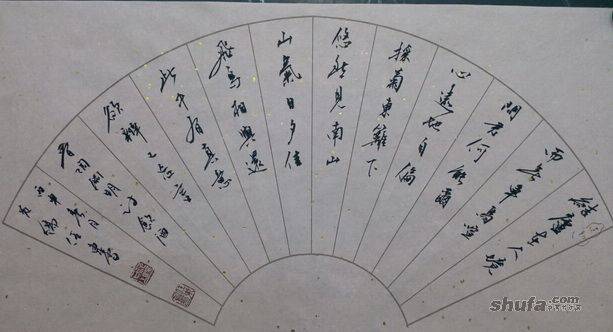 結廬在人境
而無車馬喧
問君何能爾
心遠地自偏
採菊東籬下
悠然見南山
山氣日夕佳
飛鳥相與還
此中有真意
欲辨已忘言
晉陶淵明詩飲酒
shufa.com